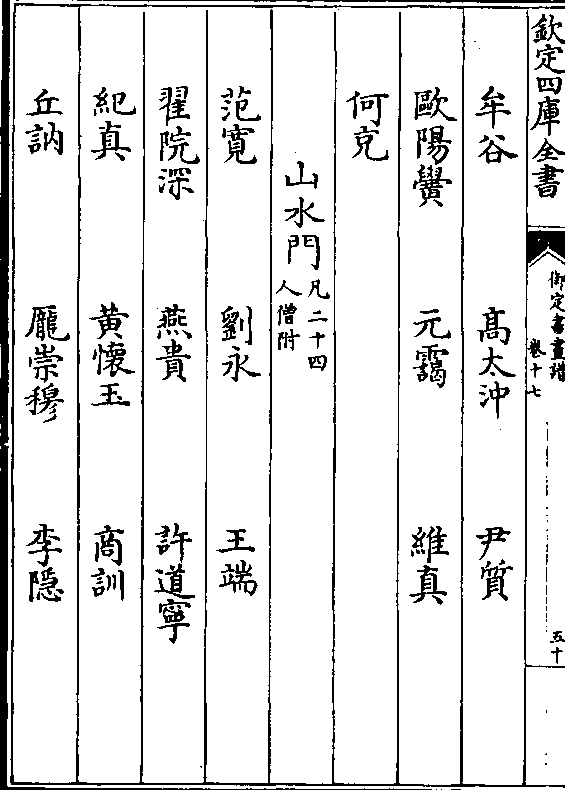 欽定四庫全書
御定書畫譜
卷十七
五十
牟谷 高太沖 尹質
歐陽黌 元靄 維真
何充
山水門 凡二十四人僧附
范寬 劉永 王端
翟院深 燕貴 許道寧
紀真 黄懷玉 商訓
丘訥 龎崇穆 李隱